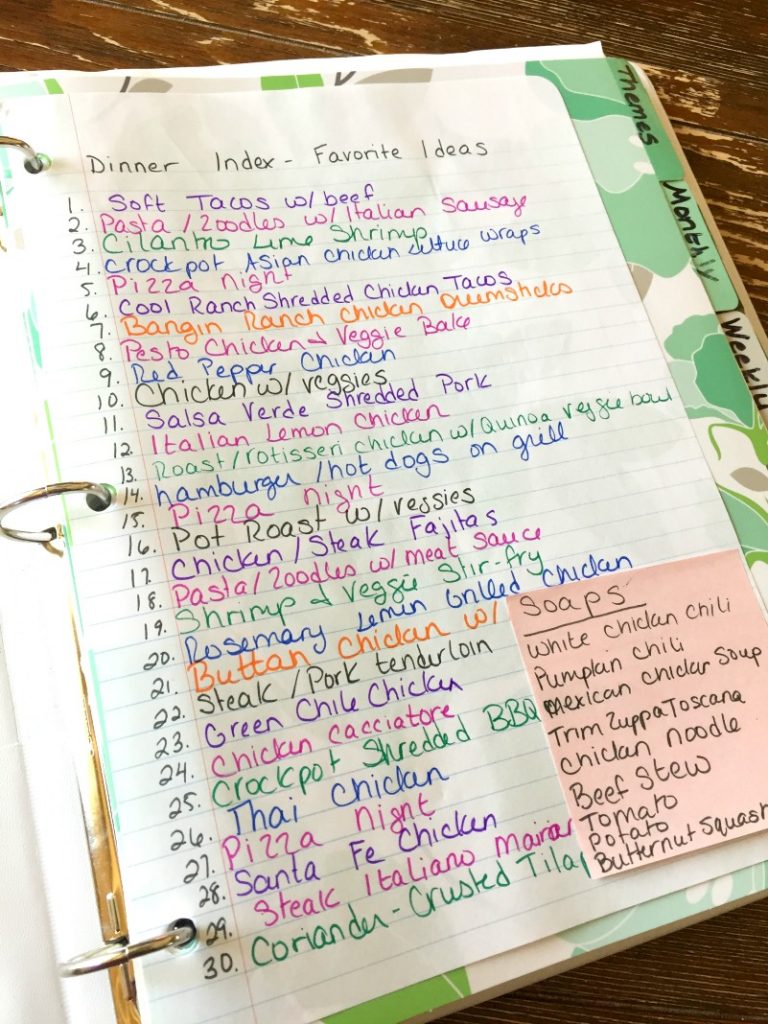 Dinner Index - Favorite Ideas
1. Soft Tacos w/ beef
2. Pasta / Zoodles w/ Italian Sausage
3. Cilantro Lime Shrimp
4. Crockpot Asian chicken lettuce wraps
5. Pizza night
6. Cool Ranch Shredded Chicken Tacos
7. Bangin Ranch chicken Drumsticks
8. Pesto Chicken & Veggie Bake
9. Red Pepper Chicken
10. Chicken w/ veggies
11. Salsa Verde Shredded Pork
12. Italian Lemon Chicken
13. Roast/rotisseri chicken w/ Quinoa veggie bowl
14. hamburger / hot dogs on grill
15. Pizza night
16. Pot Roast w/ veggies
17. Chicken / Steak Fajitas
18. Pasta/Zoodles w/ meat sauce
19. Shrimp & Veggie Stir-fry
20. Rosemary Lemon Grilled Chicken
21. Chicken w/
22. Steak / Pork tenderloin
23. Green Chile Chicken
24. Chicken cacciatore
25. Crockpot Shredded BBQ
26. Thai Chicken
27. Pizza night
28. Santa Fe Chicken
29. Steak Italiano
30. Coriander-Crusted
Soaps
White chicken chili
Pumpkin chili
Mexican chicken Soup
Trim Zuppa Toscana
Chicken noodle
Beef Stew
Tomato
Potato
Butternut Squash
Themes
Monthly
Weekly